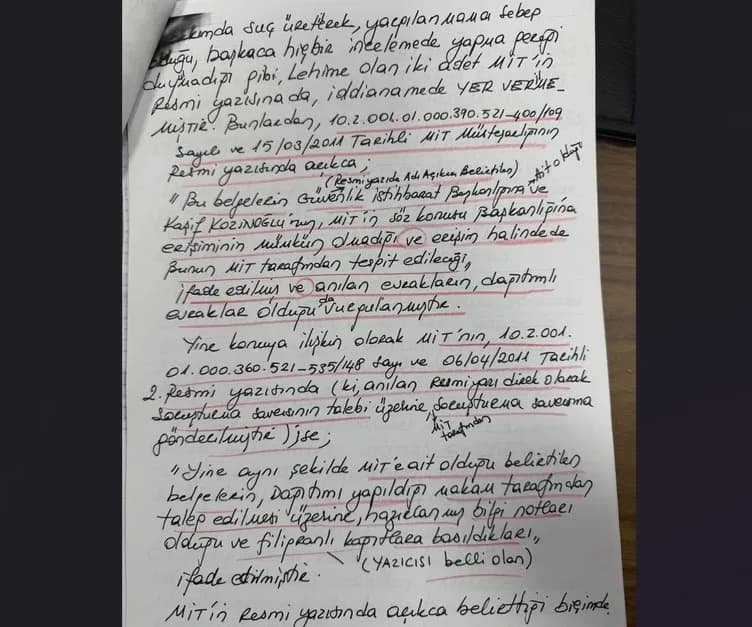 suç üreterek, yacpılanmama sebep
olduğu, başkaca hiçbir incelemede yapma gereği
duymadığı gibi, Lehime olan iki adet MİT'in
Resmi yazısına da, iddianamede YER VERME-
MİŞTİR. Bunlardan, 10.2.001.01.000.390.521-400/109
Sayılı ve 15/03/2011 Tarihli MİT Müsteşarlığının
Resmi yazısında açıkca;
(Resmi yazıda Adı Açıkca Belirtilen)
ait olduğu
"Bu belgelerin Güvenlik istihbarat Başkanlığına ve
Kaşif KOZİNOĞLU'nun, MİT'in söz konusu Başkanlığına
erişiminin mümkün olmadığı ve erişim halinde de
Bunun MİT tarafından tespit edileceği,,
ifade edilmiş ve anılan evrakların, dağıtımlı
evraklar olduğu da vurgulanmıştır.
Yine konuya ilişkin olarak MİT'nın, 10.2.001.
01.000.360.521-535/148 Sayı ve 06/04/2011 Tarihli
2. Resmi yazısında (ki, anılan Resmi yazı direk olarak
Soruşturma savcısının talebi üzerine, soruşturma savcısına
MİT tarafından
gönderilmiştir) ise;
"Yine aynı şekilde MİT'e ait olduğu belirtilen
belgelerin, Dağıtımı yapıldığı makam tarafından
talep edilmesi üzerine, hazırlanmış bilgi notları
olduğu ve filigranlı kağıtlara basıldıkları,,
(YAZICISI belli olan)
ifade edilmiştir.
MİT'in Resmi yazısında açıkca belirttiği biçimde